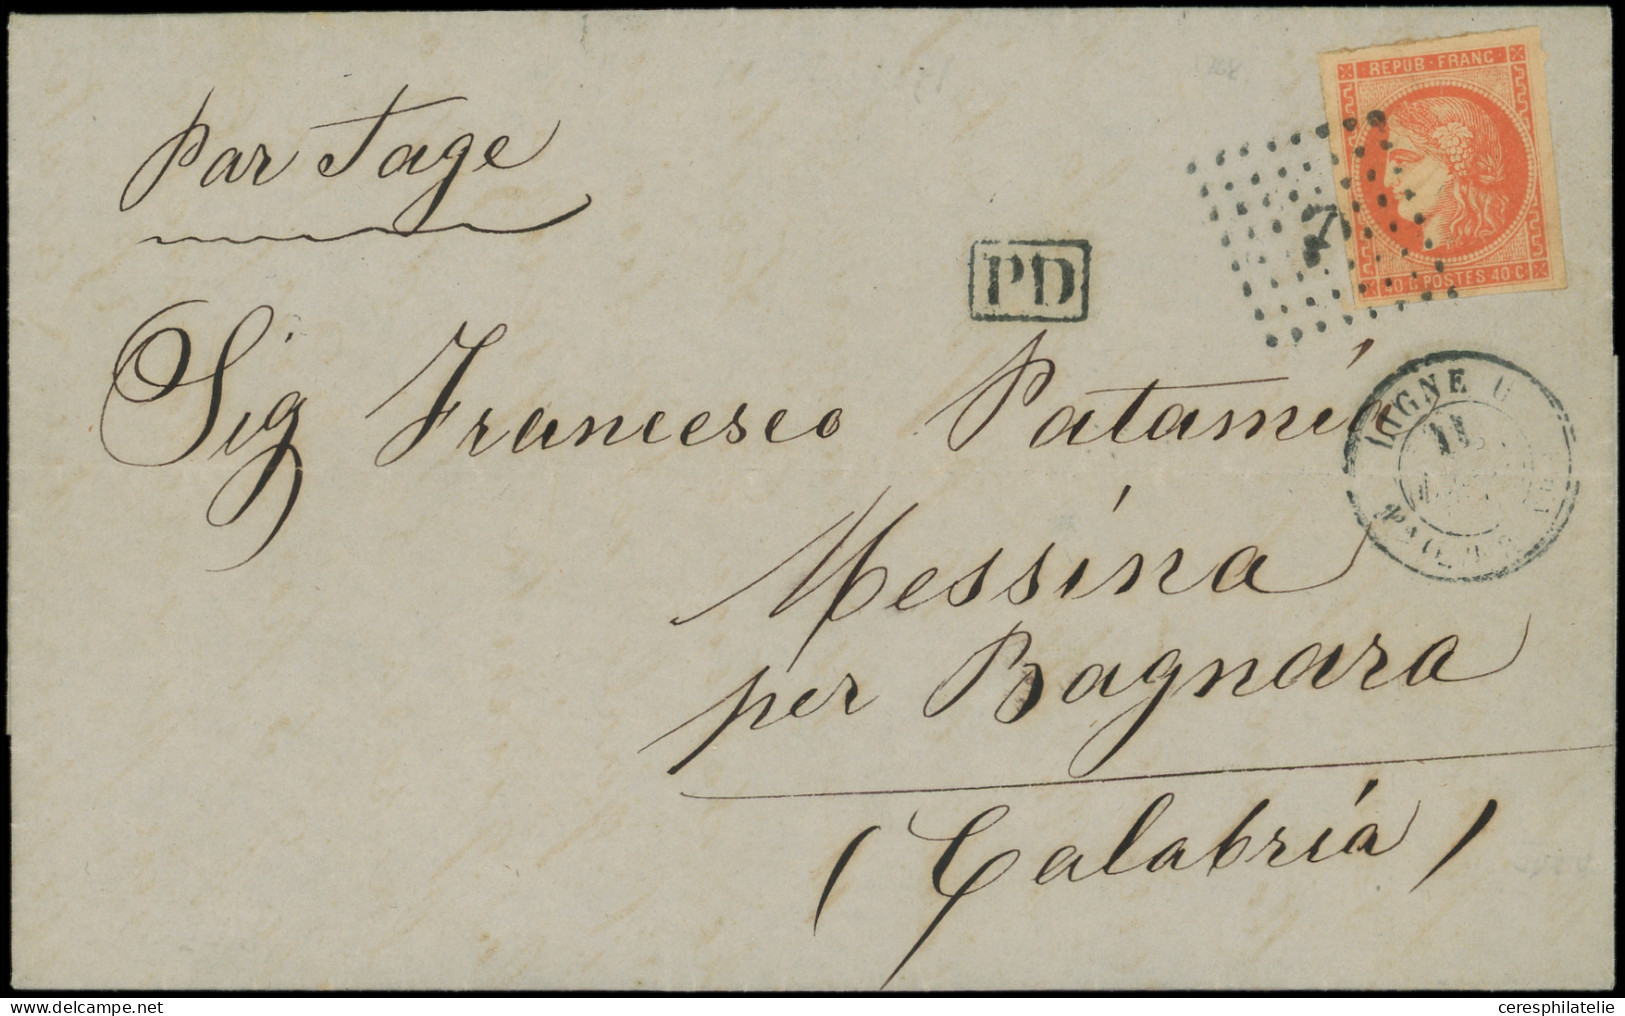 par Tage
REPUB · FRANC
40 C POSTES 40 C
PD
LIGNE U
11
Sig Francesco Patamía
Messina
per Bagnara
(Calabria)
ceresphilatelie